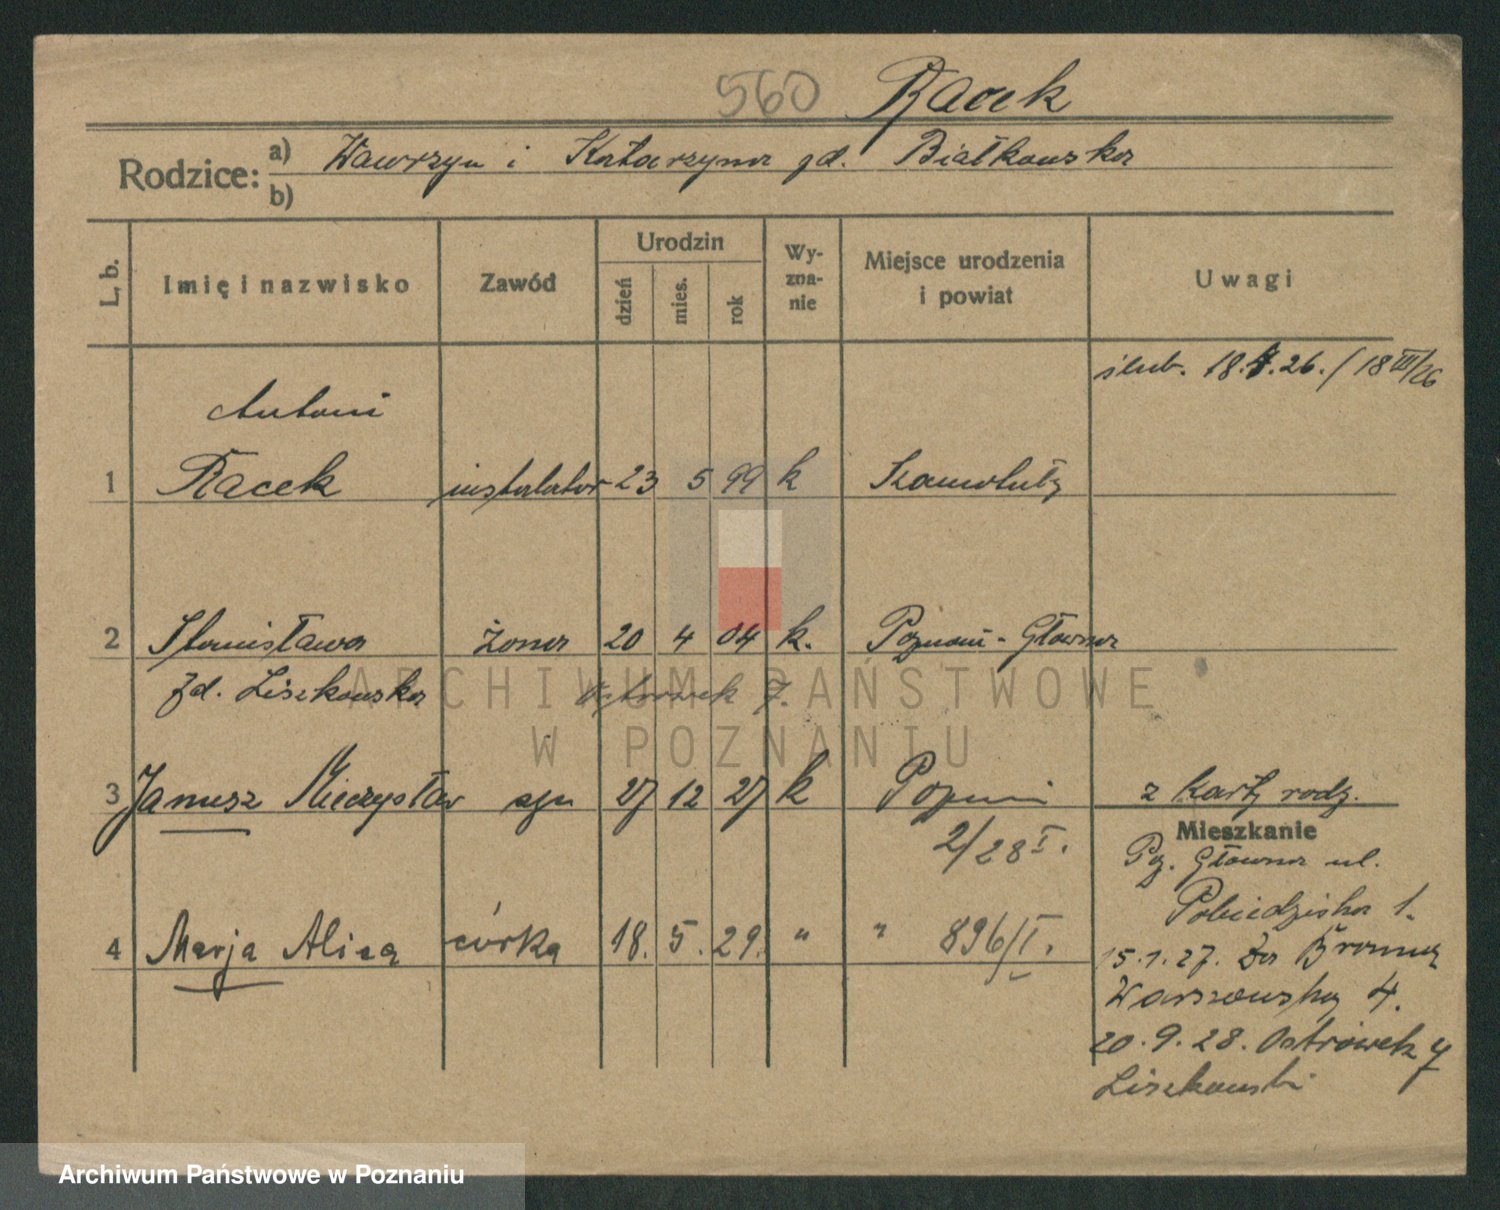 560 Racek
Rodzice: a) Wawrzyn i Katarzyna zd. Białkowska
b)
L. b. Imię i nazwisko Zawód Urodzin dzień mies. rok Wyznanie Miejsce urodzenia i powiat Uwagi
ślub. 18.4.26. / 18 III/26
Antoni
1 Racek instalator 23 5 99 k Szamotuły
2 Stanisława żona 20 4 04 k. Poznań-Główna
zd. Liszkowska Ostrówek 7.
3 Janusz Mieczysław syn 27 12 27 k Poznań z karty rodz.
2/28 I.
Mieszkanie
Pz. Główna ul.
Pobiedziska 1.
4 Marja Alica córka 18. 5. 29. " " 896/I.
15.1.27. Za Bramą
Warszawską 4.
20.9.28. Ostrówek 7
Liszkowski
ARCHIWUM PAŃSTWOWE
W POZNANIU
Archiwum Państwowe w Poznaniu